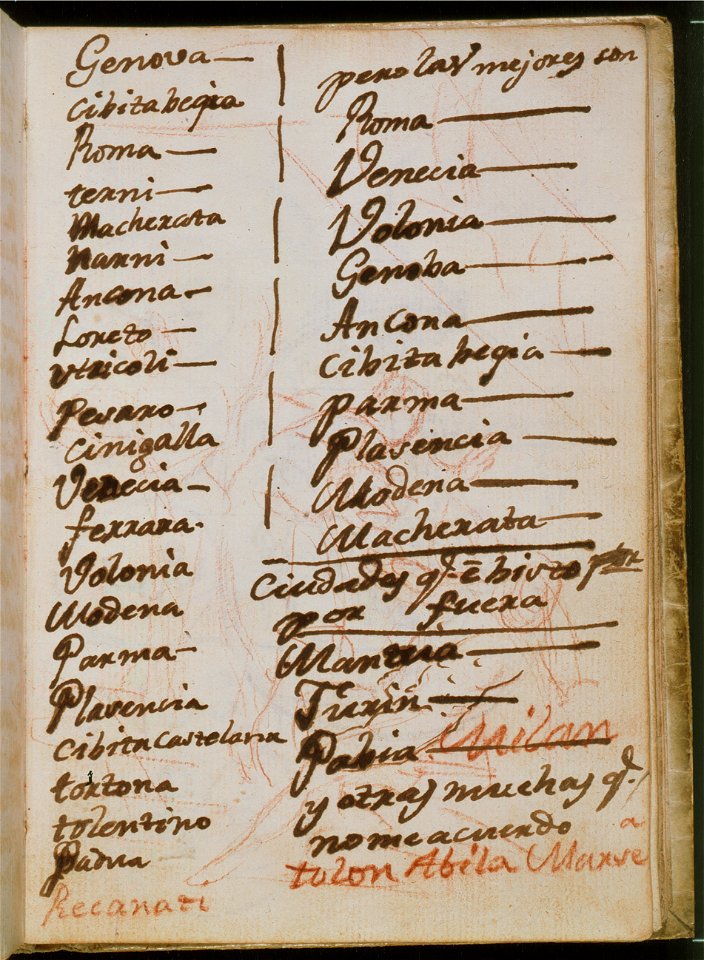 Genova
Cibita begia
Roma
terni
Macherata
Narni
Ancona
Loreto
Utricoli
Pesaro
Cinigalla
Venecia
ferrara
Volonia
Modena
Parma
Plasencia
Cibita castelana
tortona
tolentino
Padua
Recanati
pero las mejores son
Roma
Venecia
Volonia
Genoba
Ancona
Cibita begia
parma
Plasencia
Modena
Macherata
Ciudades q.e e bisto
por fuera
Mantua
Turin
Pabia Milan
y otras muchas q.e
no me acuerdo a
tolon Abila Marse